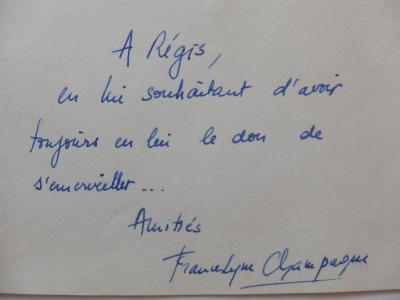 A Régis,
en lui souhaitant d'avoir
toujours en lui le don de
s'émerveiller...
Amitiés
Francelyne Champagne